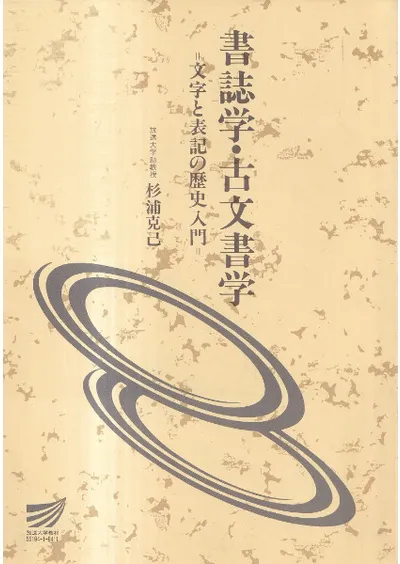 書誌学・古文書学
=文字と表記の歴史入門=
放送大学助教授 杉浦克己
放送大学教材